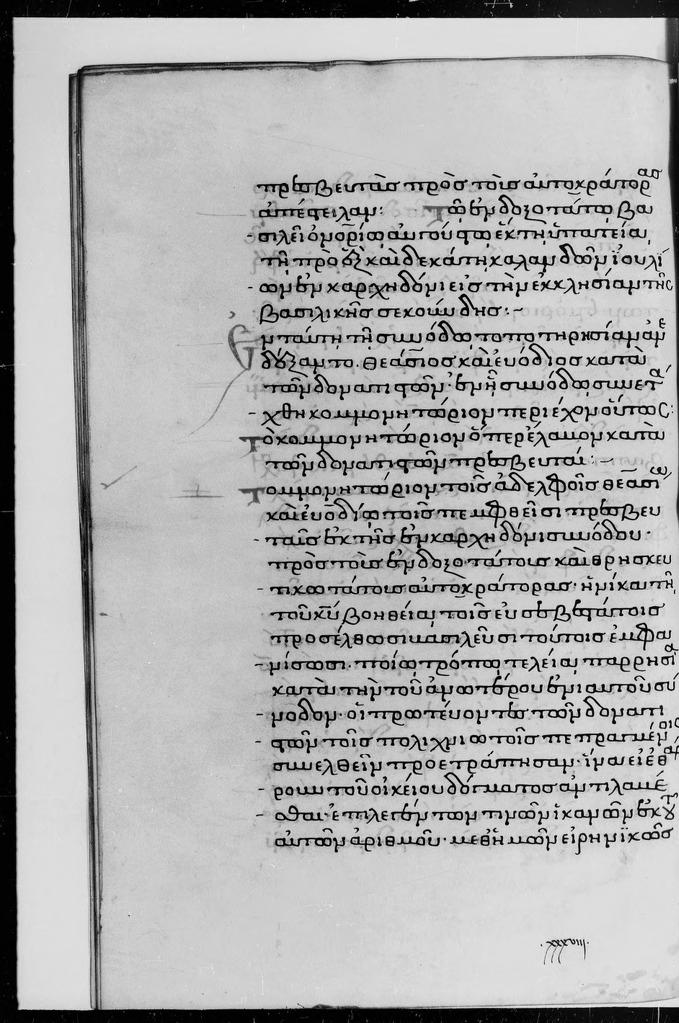 πρεσβευτὰς πρὸς τοὺς αὐτοκράτορας
ἀπέστειλαν: Τῶ ἐνδοξοτάτω βα
σιλεῖ ὁνορίω αυγούστω ἑκτη ὑπατεία,
τῆ πρὸ δεκαὶδεκάτη καλανδῶν ϊουλί
ων ἐν καρχηδόνι εἰς τὴν ἐκκλησίαν τῆς
βασιλικῆς σεκούνδης:~
Ἐν ταύτη τῆ συνόδω τοποτηρησίαν ἀνε
δέξαντο. θεάσιος καὶ εὐόδιος κατὰ
τῶν δονατιστῶν· ἐν ἧ συνόδω συνετά
χθη κομμονητώριον περιέχον οὕτως:
Τὸ κομμονητώριον ὅπερ ἔλαβον κατὰ
τῶν δονατιστῶν πρεσβευταί:~
Κομμονητώριον τοῖς ἀδελφοῖς θεασίω
καὶ εὐοδίω τοῖς πεμφθεῖσι πρεσβευ
ταῖς ἐκ τῆς ἐν καρχηδόνι συνόδου·
πρὸς τοὺς ἐνδοξοτάτους καὶ θρησκευ
τικωτάτους αὐτοκράτορας· ἡνίκα τῆ
τοῦ κυ βοηθεία, τοῖς εὐσεβεστάτοις
προσέλθωσι βασιλεῦσι τούτοις ἐμφα
νίσωσι. ποίω τρόπω τελεία παρρησία
κατὰ τὴν τοῦ ἀνωτέρου ἐνιαυτοῦ σύ
νοδον· οἱ πρωτεύοντες τῶν δονατι
στῶν τοῖς πολιχνιωτοῖς πεπραγμένοις
συνελθεῖν προετράπησαν· ἵνα εἰ ἐθάρ
ρουν τοῦ οἰκείου δόγματος ἀντιλαβέ
σθαι· ἐπιλεγέντων τινῶν ἱκανῶν ἐκ τοῦ
αὐτῶν ἀριθμοῦ· μεθ ἡμῶν εἰρηνϊκῶς
.xxxviiij.